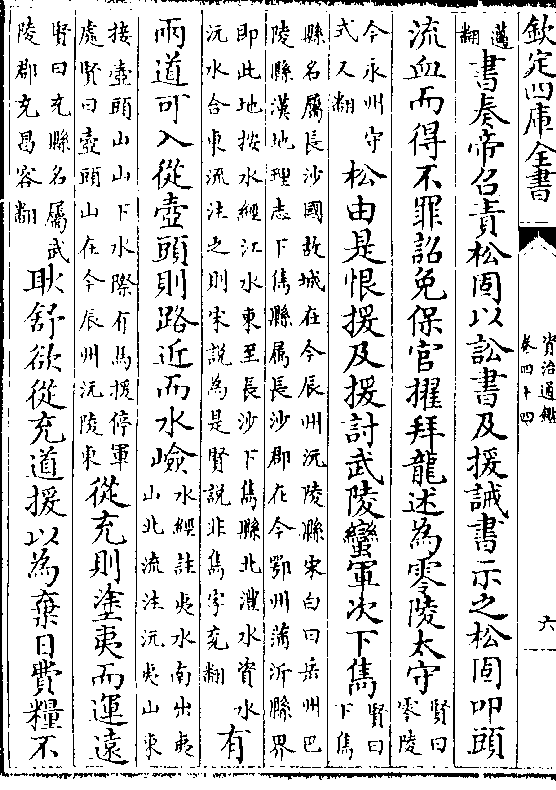 欽定四庫全書
資治通鑑
卷四十四
六
邁
翻
書奏帝召責松固以訟書及援誡書示之松固叩頭
流血而得不罪詔免保官擢拜龍述為零陵太守
賢曰
零陵
今永州守
式又翻
松由是恨援及援討武陵蠻軍次下雋
賢曰
下雋
縣名屬長沙國故城在今辰州沅陵縣宋白曰岳州巴
陵縣漢地理志下雋縣屬長沙郡在今鄂州蒲沂縣界
即此地按水經江水東至長沙下雋縣北澧水資水
沅水合東流注之則宋說為是賢說非雋字兗翻
有
兩道可入從壺頭則路近而水嶮
水經註夷水南出夷
山北流注沅夷山東
接壺頭山山下水際有馬援停軍
處賢曰壺頭山在今辰州沅陵東
從充則塗夷而運遠
賢曰充縣名屬武
陵郡充昌容翻
耿舒欲從充道援以為棄日費糧不